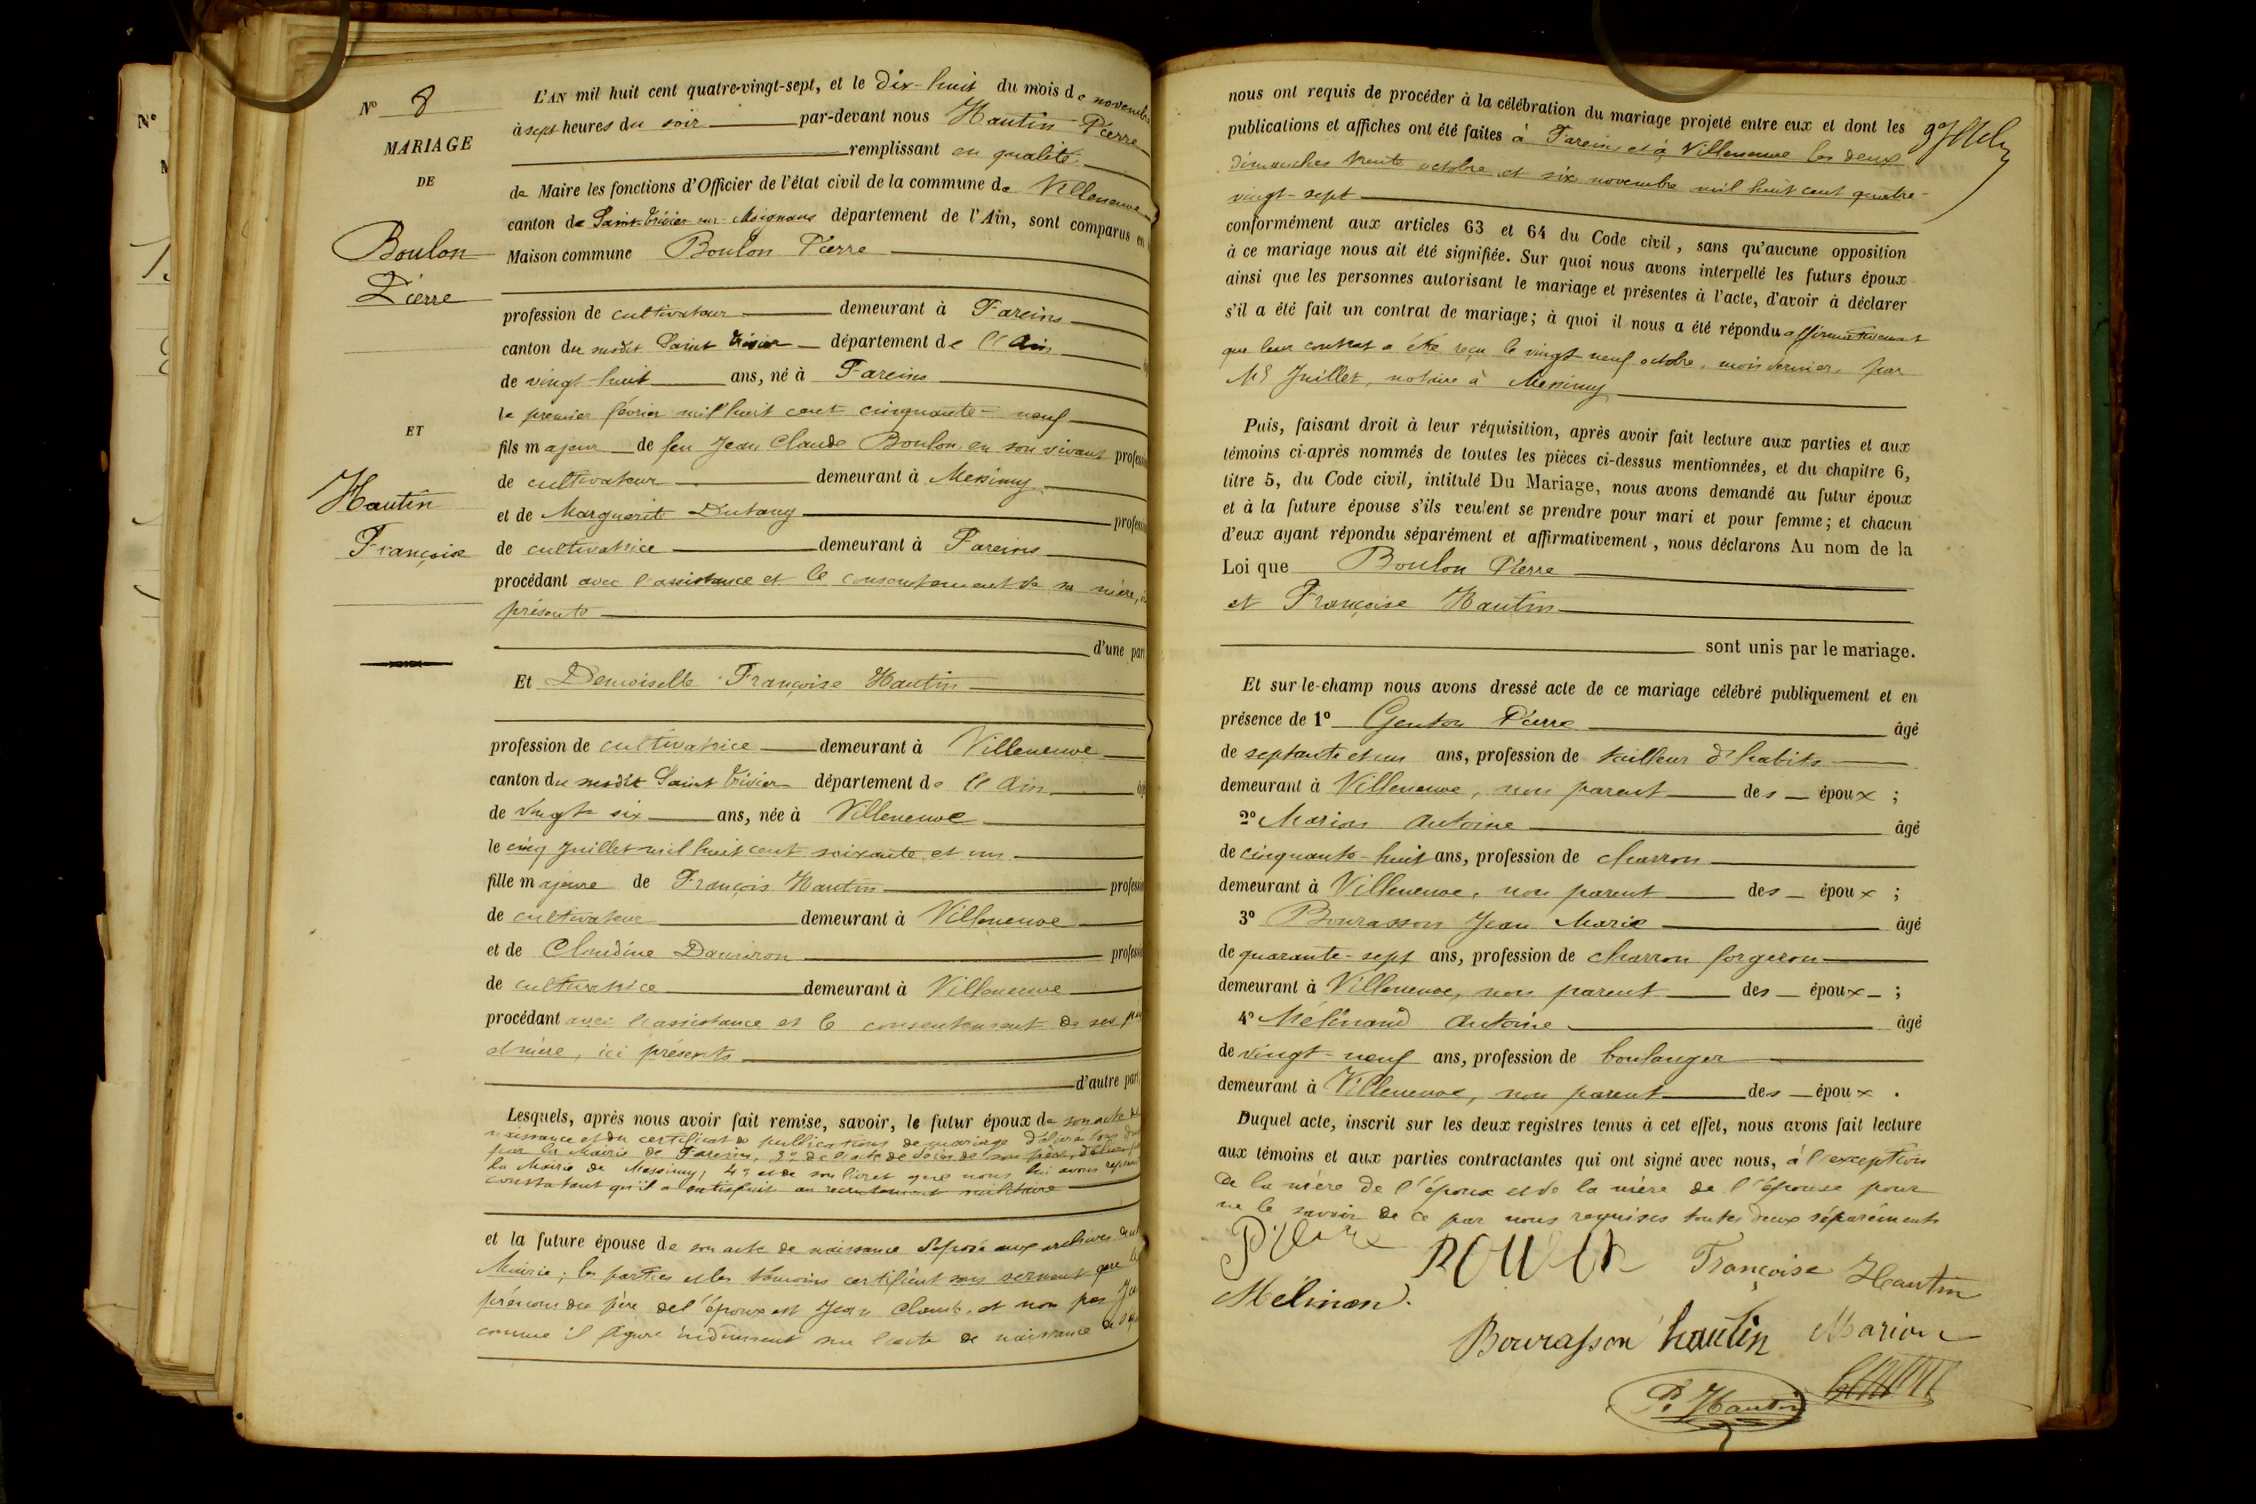 N° 8
MARIAGE
DE
Boulon
Pierre
ET
Hautin
Françoise
L'AN mil huit cent quatre-vingt-sept, et le Dix-huit du mois de novembre
à sept heures du soir par-devant nous Hautin Pierre
remplissant en qualité
de Maire les fonctions d'Officier de l'état civil de la commune de Villeneuve
canton de Saint-Trivier sur Moignans département de l'Ain, sont comparus en
Maison commune Boulon Pierre
profession de cultivateur demeurant à Fareins
canton du susdit Saint Trivier département de l'Ain
de vingt-huit ans, né à Fareins
le premier février mil huit cent cinquante-neuf
fils majeur de feu Jean Claude Boulon, en son vivant profess
de cultivateur demeurant à Messimy
et de Marguerite profess
de cultivatrice demeurant à Fareins
procédant avec l'assistance et le consentement de sa mère, ici
présente
d'une part
Et Demoiselle Françoise Hautin
profession de cultivatrice demeurant à Villeneuve
canton du susdit Saint Trivier département de l'Ain
de vingt six ans, née à Villeneuve
le cinq Juillet mil huit cent soixante et un
fille majeure de François Hautin profess
de cultivateur demeurant à Villeneuve
et de Claudine profess
de cultivatrice demeurant à Villeneuve
procédant avec l'assistance et le consentement de ses père
et mère, ici présents
d'autre part,
Lesquels, après nous avoir fait remise, savoir, le futur époux de son acte de
naissance et du certificat de publications de mariage délivrés tous deux
par la Mairie de Fareins, 3° de l'acte de décès de son père, délivré par
la Mairie de Messimy; 4° et de son livret que nous lui avons
constatant qu'il a satisfait au recrutement militaire
et la future épouse de son acte de naissance déposé aux archives de
Mairie; les parties et les témoins certifient sous serment que les
prénoms du père de l'époux est Jean Claude, et non pas
comme il figure indûment sur l'acte de naissance de
nous ont requis de procéder à la célébration du mariage projeté entre eux et dont les
publications et affiches ont été faites à Fareins et à Villeneuve les deux
dimanches trente octobre et six novembre mil huit cent quatre-
vingt-sept
conformément aux articles 63 et 64 du Code civil, sans qu'aucune opposition
à ce mariage nous ait été signifiée. Sur quoi nous avons interpellé les futurs époux
ainsi que les personnes autorisant le mariage et présentes à l'acte, d'avoir à déclarer
s'il a été fait un contrat de mariage; à quoi il nous a été répondu affirmativement
que leur contrat a été reçu le vingt neuf octobre, mois dernier, par
Me Juillet, notaire à Messimy
Puis, faisant droit à leur réquisition, après avoir fait lecture aux parties et aux
témoins ci-après nommés de toutes les pièces ci-dessus mentionnées, et du chapitre 6,
titre 5, du Code civil, intitulé Du Mariage, nous avons demandé au futur époux
et à la future épouse s'ils veulent se prendre pour mari et pour femme; et chacun
d'eux ayant répondu séparément et affirmativement, nous déclarons Au nom de la
Loi que Boulon Pierre
et Françoise Hautin
sont unis par le mariage.
Et sur-le-champ nous avons dressé acte de ce mariage célébré publiquement et en
présence de 1° Genton Pierre âgé
de septante et un ans, profession de tailleur d'habits
demeurant à Villeneuve, non parent des époux ;
2° Marion Antoine âgé
de cinquante-huit ans, profession de charron
demeurant à Villeneuve, non parent des époux ;
3° Bourasson Jean Marie âgé
de quarante-sept ans, profession de charron forgeron
demeurant à Villeneuve, non parent des époux ;
4° Mélinand Antoine âgé
de vingt-neuf ans, profession de boulanger
demeurant à Villeneuve, non parent des époux .
Duquel acte, inscrit sur les deux registres tenus à cet effet, nous avons fait lecture
aux témoins et aux parties contractantes qui ont signé avec nous, à l'exception
de la mère de l'époux et de la mère de l'épouse pour
ne le savoir de ce par nous requises toutes deux séparément
Françoise Hautin
Mélinand
Bourasson hautin Marion
P. Hautin